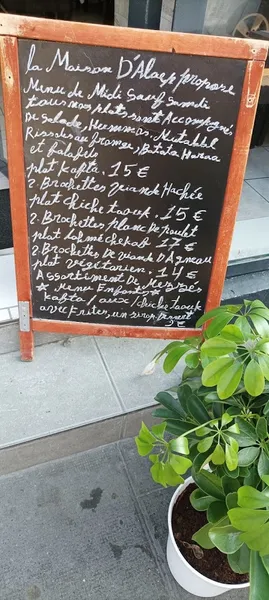 la Maison D'Alep propose
Menu de Midi Sauf Samdi
tous nos plats sont Accompagné
De Salade, Hummos. Mutabbl
Rissole au fromage, Batata Harraa
et falafils
plat Kafta. 15€
2. Brochettes viande Hachée
plat chiche taouk. 15€
2. Brochettes planc De poulet
plat lahmé chekab 17€
2. Brochettes De viande D Agneau
plat végitarien. 14€
Assortiment De Mezzés
* Menu Enfants *
kafta / aux / chiche taouk
avec frites, un sirop, Dessert
9€